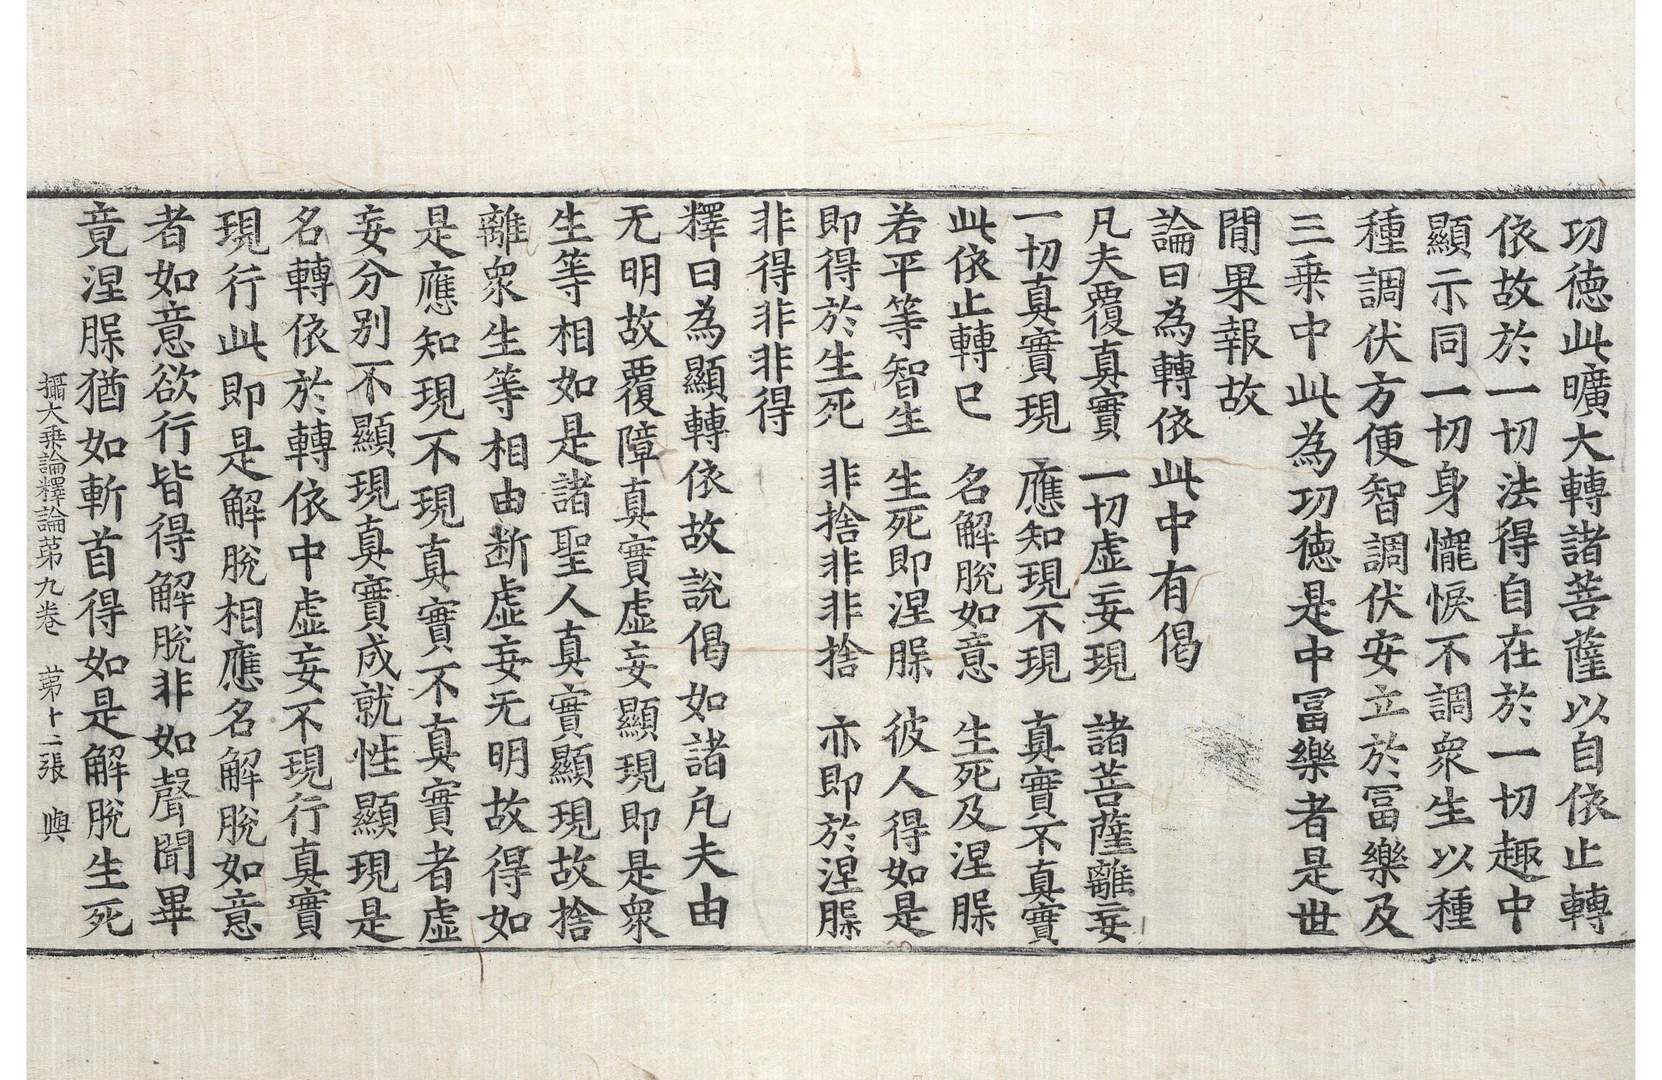 功德此曠大轉諸菩薩以自依止轉
依故於一切法得自在於一切趣中
顯示同一切身懺悷不調衆生以種
種調伏方便智調伏安立於冨樂及
三乗中此為功德是中冨樂者是世
間果報故
論曰為轉依此中有偈
凡夫覆真實　一切虛妄現　諸菩薩離妄
一切真實現　應知現不現　真實不真實
此依止轉已　名解脫如意　生死及涅脲
若平等智生　生死即涅脲　彼人得如是
即得於生死　非捨非非捨　亦即於涅脲
非得非非得
釋曰為顯轉依故說偈如諸凡夫由
无明故覆障真實虛妄顯現即是衆
生等相如是諸聖人真實顯現故捨
離衆生等相由断虛妄无明故得如
是應知現不現真實不真實者虛
妄分別不顯現真實成就性顯現是
名轉依於轉依中虛妄不現行真實
現行此即是解脫相應名解脫如意
者如意欲行皆得解脫非如聲聞畢
竟涅脲猶如斬首得如是解脫生死
攝大乗論釋論苐九卷　苐十二張　與